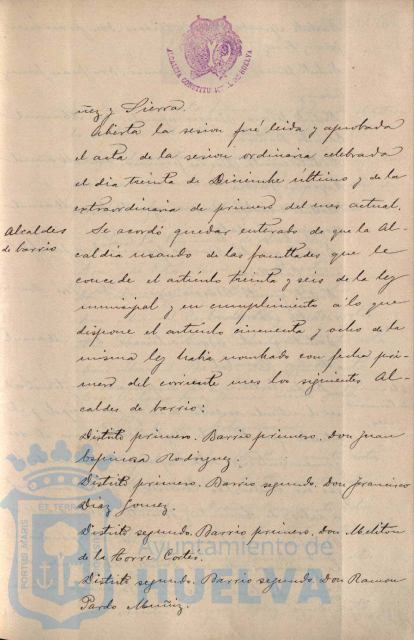 ALCALDIA CONSTITUCIONAL DE HUELVA
ñez y Sierra.
Abierta la sesion fué leida y aprobada
el acta de la sesion ordinaria celebrada
el dia treinta de Diciembre último y de la
extraordinaria de primero del mes actual.
Alcaldes
de barrio
Se acordó quedar enterado de que la Al-
caldia usando de las facultades que le
concede el artículo treinta y seis de la ley
municipal y en cumplimiento á lo que
dispone el artículo cincuenta y ocho de la
misma ley habia nombrado con fecha pri-
mero del corriente mes los siguientes Al-
caldes de barrio:
Distrito primero. Barrio primero. Don Juan
Espinosa Rodriguez.
Distrito primero. Barrio segundo. Don Francisco
Diaz Gomez.
Distrito segundo. Barrio primero. Don Meliton
de la Torre Cortés.
Distrito segundo. Barrio segundo. Don Ramon
Pardo Muñiz.
PORTUS MARIS ET TERRÆ
Ayuntamiento de
HUELVA